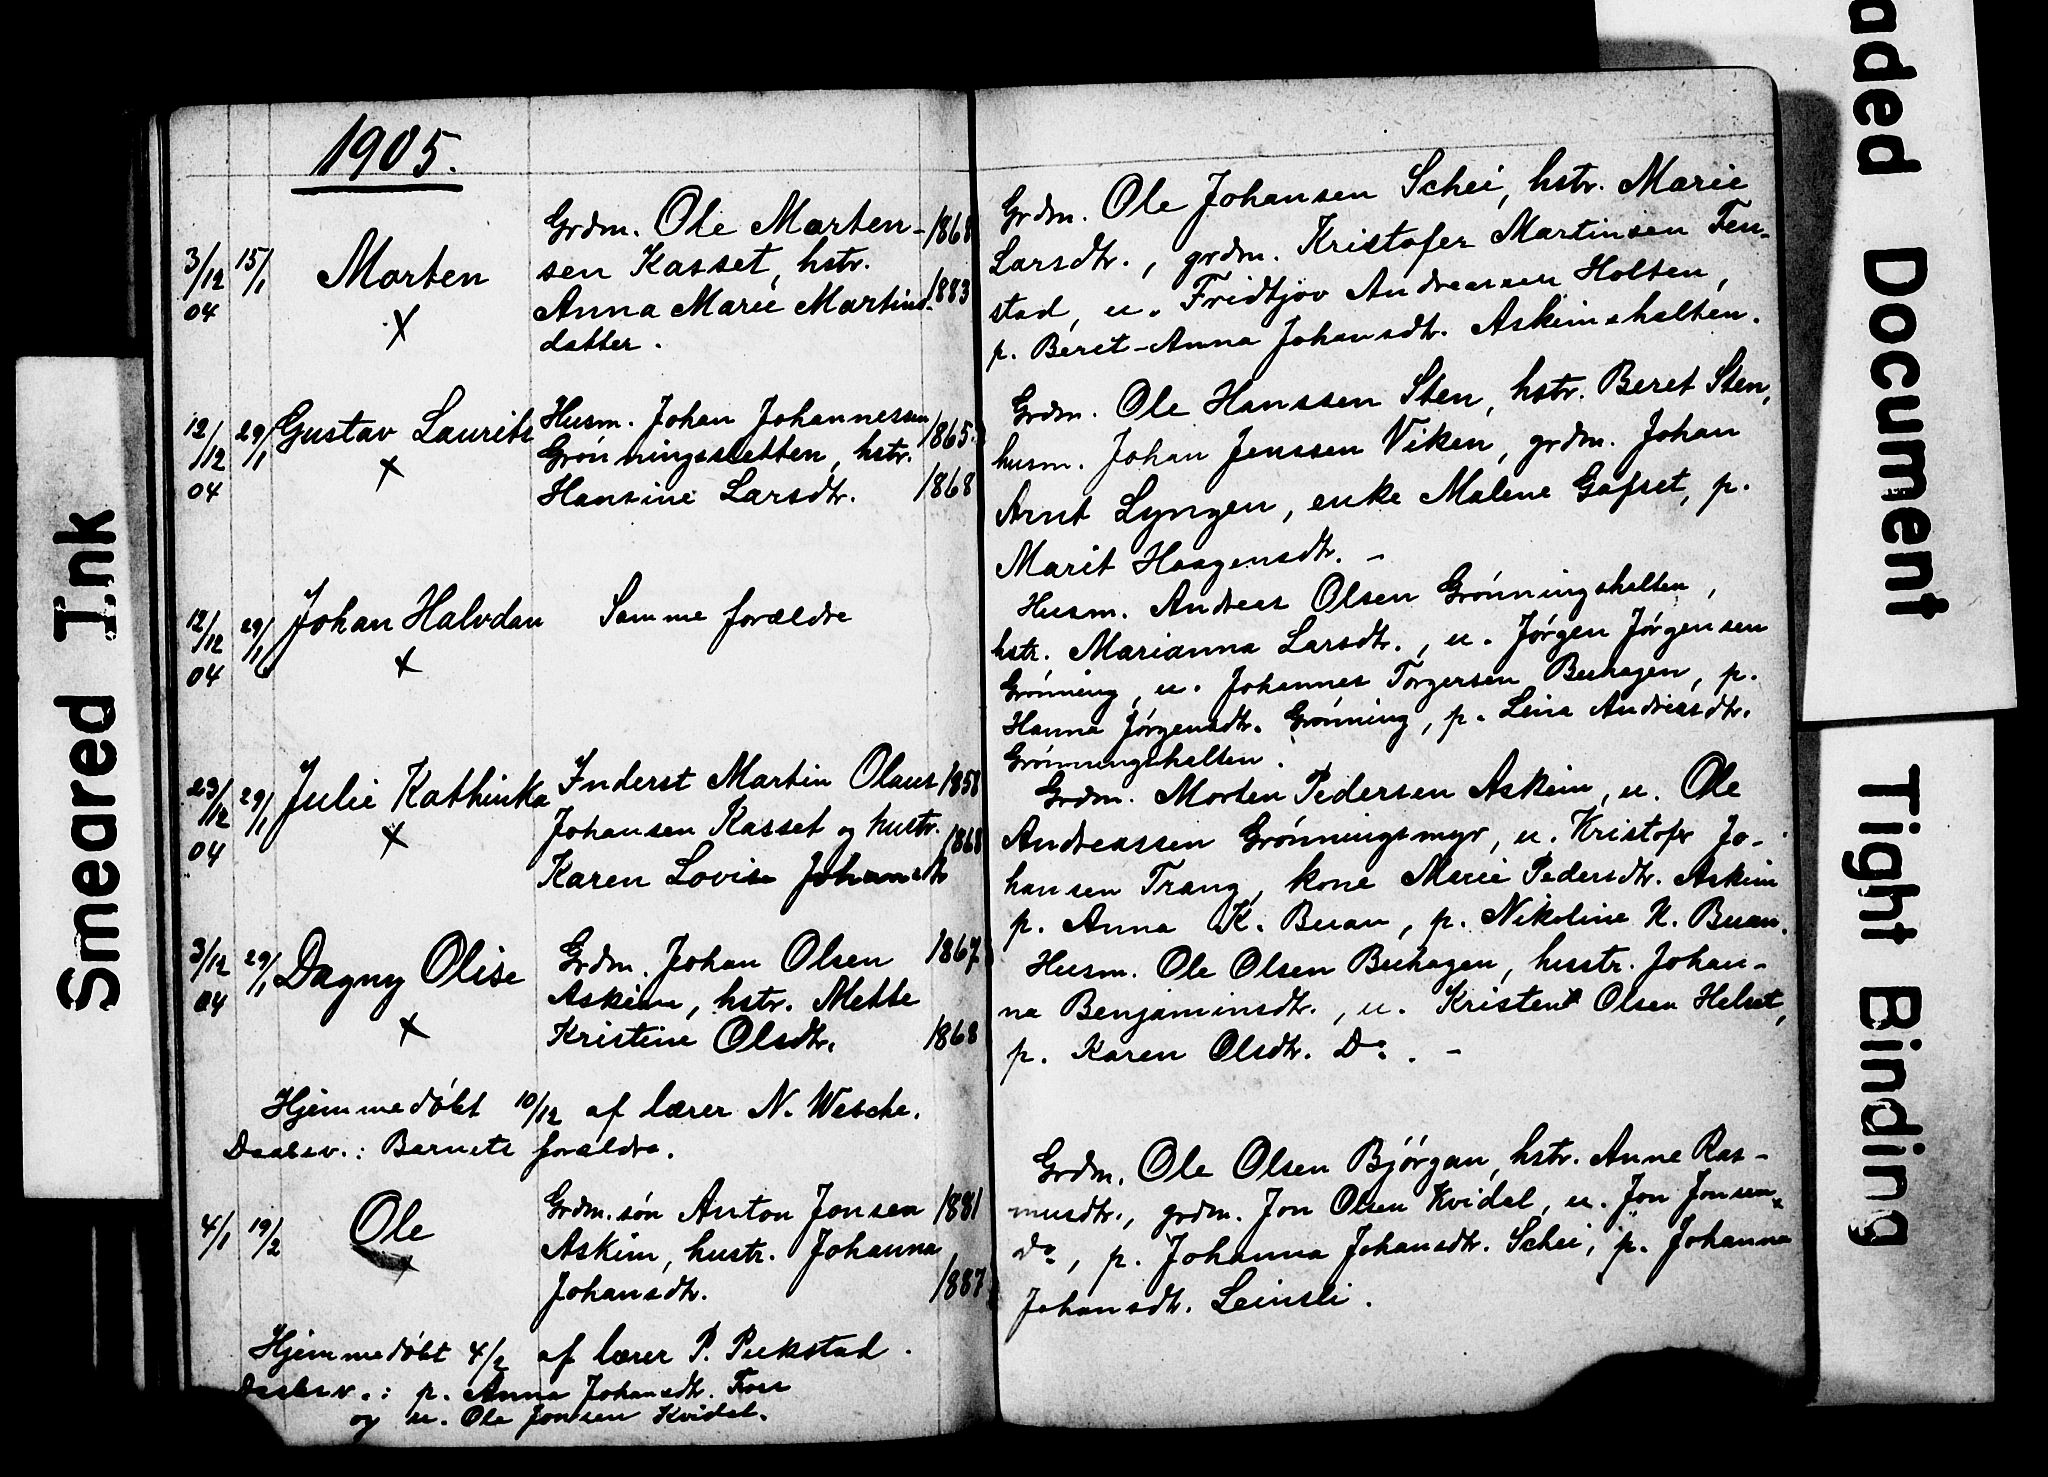 1905.
3/12 04
15/1
Morten
x
Grdm. Ole Morten-
sen Kasset, hstr.
Anna Marie Martins-
datter.
1868
1883
12/12 04
29/1
Gustav Laurits
x
Husm. Johan Johannessen
Grønningssletten, hstr.
Hansine Larsdtr.
1865.
1868
12/12 04
29/1
Johan Halvdan
x
Samme forældre
23/12 04
29/1
Julie Kathinka
x
Inderst Martin Olaus
Johansen Kasset og hustr.
Karen Lovise Johansdtr
1858
1868
3/12 04
29/1
Dagny Olise
x
Grdm. Johan Olsen
Askim, hstr. Mette
Kristine Olsdtr.
1867
1868
Hjemmedøbt 10/12 af lærer N. Wesche.
Daabsv.: Barnets forældre.
4/1
19/2
Ole
x
Grdm.søn Anton Jonsen
Askim, hustr. Johanna
Johansdtr.
1881
1887
Hjemmedøbt 4/2 af lærer P. Pukstad.
Daabsv.: p. Anna Johansdtr. Foss
og u. Ole Jonsen Kvidal.
Grdm. Ole Johansen Schei, hstr. Marie
Larsdtr., grdm. Kristofer Martinsen Fen-
stad, u. Fridtjov Andreassen Holten,
p. Beret-Anna Johansdtr. Askimshalten.
Grdm. Ole Hanssen Sten, hstr. Beret Sten,
husm. Johan Jenssen Viken, grdm. Johan
Arnt Lyngen, enke Malene Gafset, p.
Marit Haagensdtr. -
Husm. Andreas Olsen Grønningshalten,
hstr. Marianna Larsdtr., u. Jørgen Jørgensen
Grønning, u. Johannes Torgersen Buhagen, p.
Hanna Jørgensdtr. Grønning, p. Lina Andreasdtr.
Grønningshalten.
Grdm. Morten Pedersen Askim, u. Ole
Andreassen Grønningsmyr, u. Kristofer Jo-
hansen Trang, kone Marie Pedersdtr. Askim
p. Anna K. Buan, p. Nikoline K. Buan.
Husm. Ole Olsen Buhagen, husstr. Johan-
na Benjaminsdtr., u. Kristen Olsen Helset,
p. Karen Olsdtr. Do. -
Grdm. Ole Olsen Bjørgan, hstr. Anne Ras-
musdtr., grdm. Jon Olsen Kvidal, u. Jon Jonsen
do, p. Johanna Johansdtr. Schei, p. Johanna
Johansdtr. Leinsli.
Smeared Ink
aded Document
Tight Binding